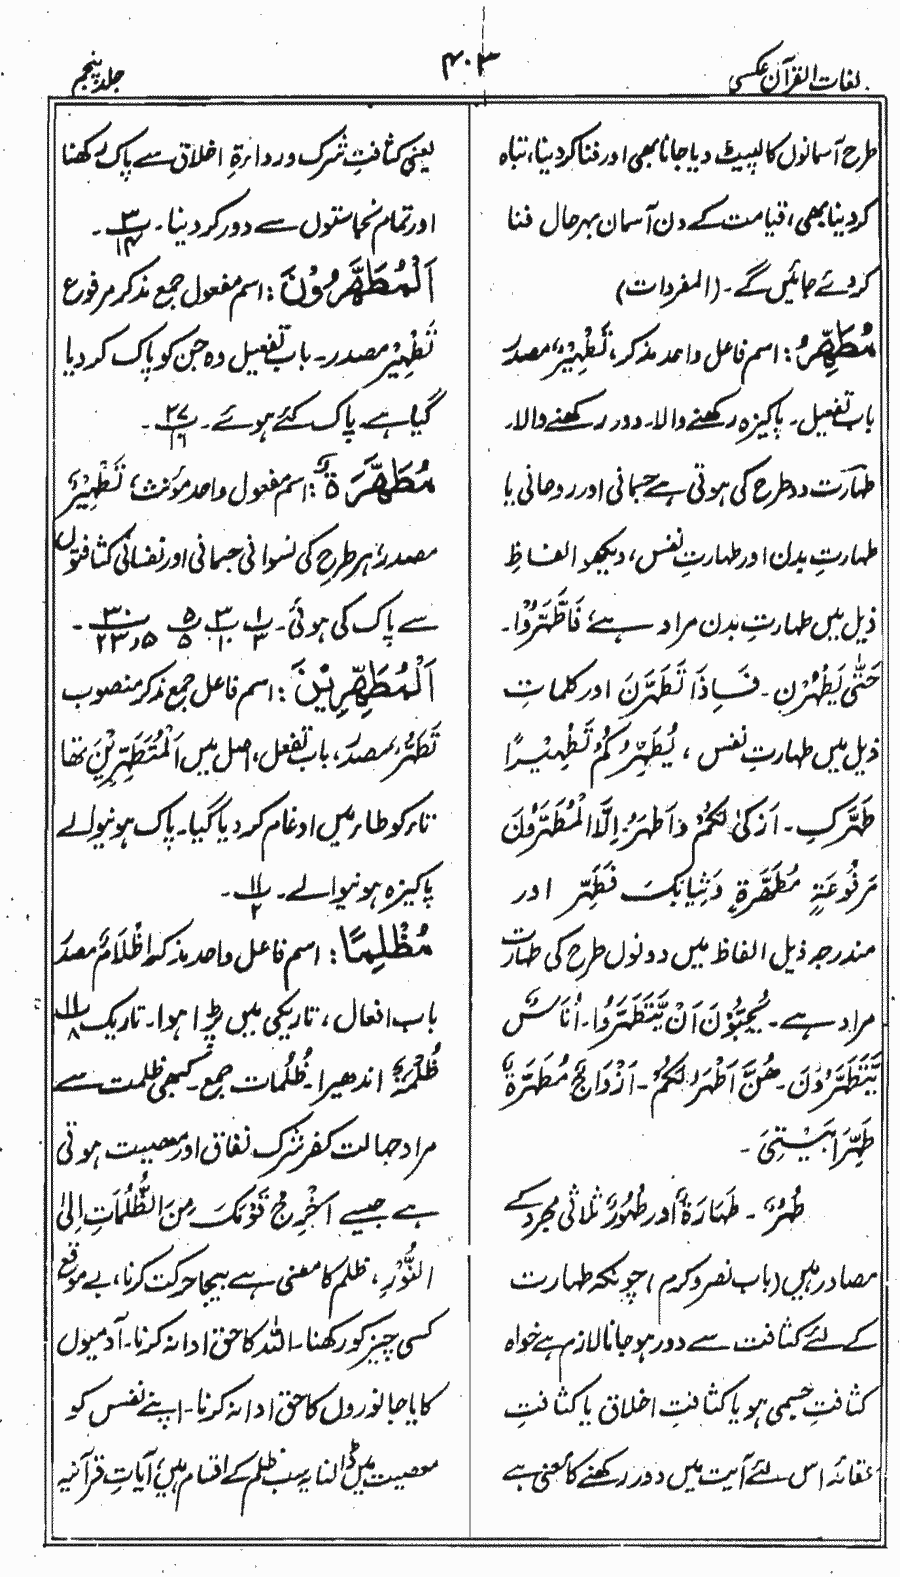 لغات القرآن عکسی
۴۰۳
جلد پنجم
طرح آسمانوں کا لپیٹ دیا جانا بھی اور فنا کر دینا، تباہ
کر دینا بھی، قیامت کے دن آسمان بہر حال فنا
کر دئے جائیں گے۔ (المفردات)
مُطَهِّرُ: اسم فاعل واحد مذکر، تَطْهِيْرٌ، مصدر
باب تفعیل۔ پاکیزہ رکھنے والا۔ دور رکھنے والا۔
طہارت دو طرح کی ہوتی ہے جسمانی اور روحانی یا
طہارتِ بدن اور طہارتِ نفس، دیکھو الفاظِ
ذیل میں طہارتِ بدن مراد ہے فَاطَّهَّرُوْا۔
حَتّٰى يَطْهُرْنَ۔ فَاِذَا تَطَهَّرْنَ اور کلماتِ
ذیل میں طہارتِ نفس، يُطَهِّرَكُمْ تَطْهِيْرًا
طَهَّرَكِ۔ اَزْكٰى لَكُمْ وَاَطْهَرُ۔ اِلَّا الْمُطَهَّرُوْنَ
مَرْفُوْعَةٍ مُطَهَّرَةٍ وَثِيَابَكَ فَطَهِّرْ اور
مندرجہ ذیل الفاظ میں دونوں طرح کی طہارت
مراد ہے۔ يُحِبُّوْنَ اَنْ يَّتَطَهَّرُوْا۔ اُنَاسٌ
يَّتَطَهَّرُوْنَ۔ هُنَّ اَطْهَرُ لَكُمْ۔ اَزْوَاجٌ مُّطَهَّرَةٌ
طَهِّرَا بَيْتِىَ۔
طُهْرٌ۔ طَهَارَةٌ اور طُهُوْرٌ ثلاثی مجرد کے
مصادر ہیں (باب نصر و کرم) چونکہ طہارت
کے لئے کثافت سے دور ہو جانا لازم ہے خواہ
کثافتِ جسمی ہو یا کثافتِ اخلاق یا کثافتِ
عقائد اس لئے آیت میں دور رکھنے کا معنی ہے
یعنی کثافتِ شرک و ردائرۂ اخلاق سے پاک رکھنا
اور تمام نجاستوں سے دور کر دینا۔ ۳/۱۴۔
اَلْمُطَهَّرُوْنَ: اسم مفعول جمع مذکر مرفوع
تَطْهِيْرٌ مصدر۔ باب تفعیل وہ جن کو پاک کر دیا
گیا ہے۔ پاک کئے ہوئے۔ ۲۷/۱۶۔
مُطَهَّرَةٌ: اسم مفعول واحد مؤنث، تَطْهِيْرٌ
مصدر، ہر طرح کی نسوانی جسمانی اور نفسانی کثافتوں
سے پاک کی ہوئی۔ ۱/۳ ۳/۱۰ ۵/۵ ۳۰/۲۳و۵۔
اَلْمُطَّهِّرِيْنَ: اسم فاعل جمع مذکر منصوب
تَطَهُّرٌ مصدر، باب تفعل، اصل میں اَلْمُتَطَهِّرِيْنَ تھا
تاء کو طاء میں ادغام کر دیا گیا۔ پاک ہونیوالے
پاکیزہ ہونیوالے۔ ۱۱/۲۔
مُظْلِمًا: اسم فاعل واحد مذکر اِظْلَامٌ مصدر
باب افعال، تاریکی میں پڑا ہوا۔ تاریک ۱۱/۸
ظُلْمَةٌ اندھیرا۔ ظُلُمَات جمع۔ کبھی ظلمت سے
مراد جہالت کفر شرک نفاق اور معصیت ہوتی
ہے جیسے اَخْرِجْ قَوْمَكَ مِنَ الظُّلُمَاتِ اِلَى
النُّوْرِ، ظلم کا معنی ہے بیجا حرکت کرنا، بے موقع
کسی چیز کو رکھنا۔ اللہ کا حق ادا نہ کرنا۔ آدمیوں
کا یا جانوروں کا حق ادا نہ کرنا۔ اپنے نفس کو
معصیت میں ڈالنا یہ سب ظلم کے اقسام ہیں، آیاتِ قرآنیہ